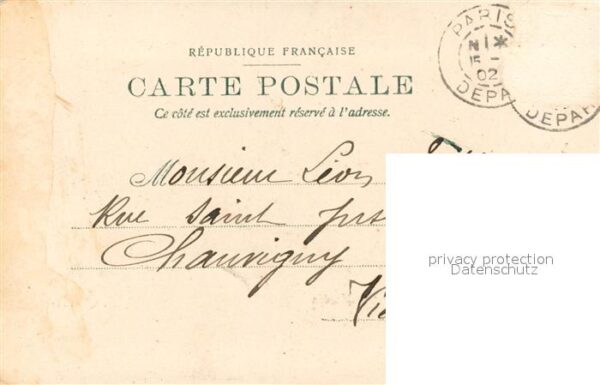 RÉPUBLIQUE FRANÇAISE
CARTE POSTALE
Ce côté est exclusivement réservé à l'adresse.
PARIS
15
02
DEPA
DEPAR
Monsieur Léon
Rue Saint Just
Chauvigny
privacy protection
Datenschutz